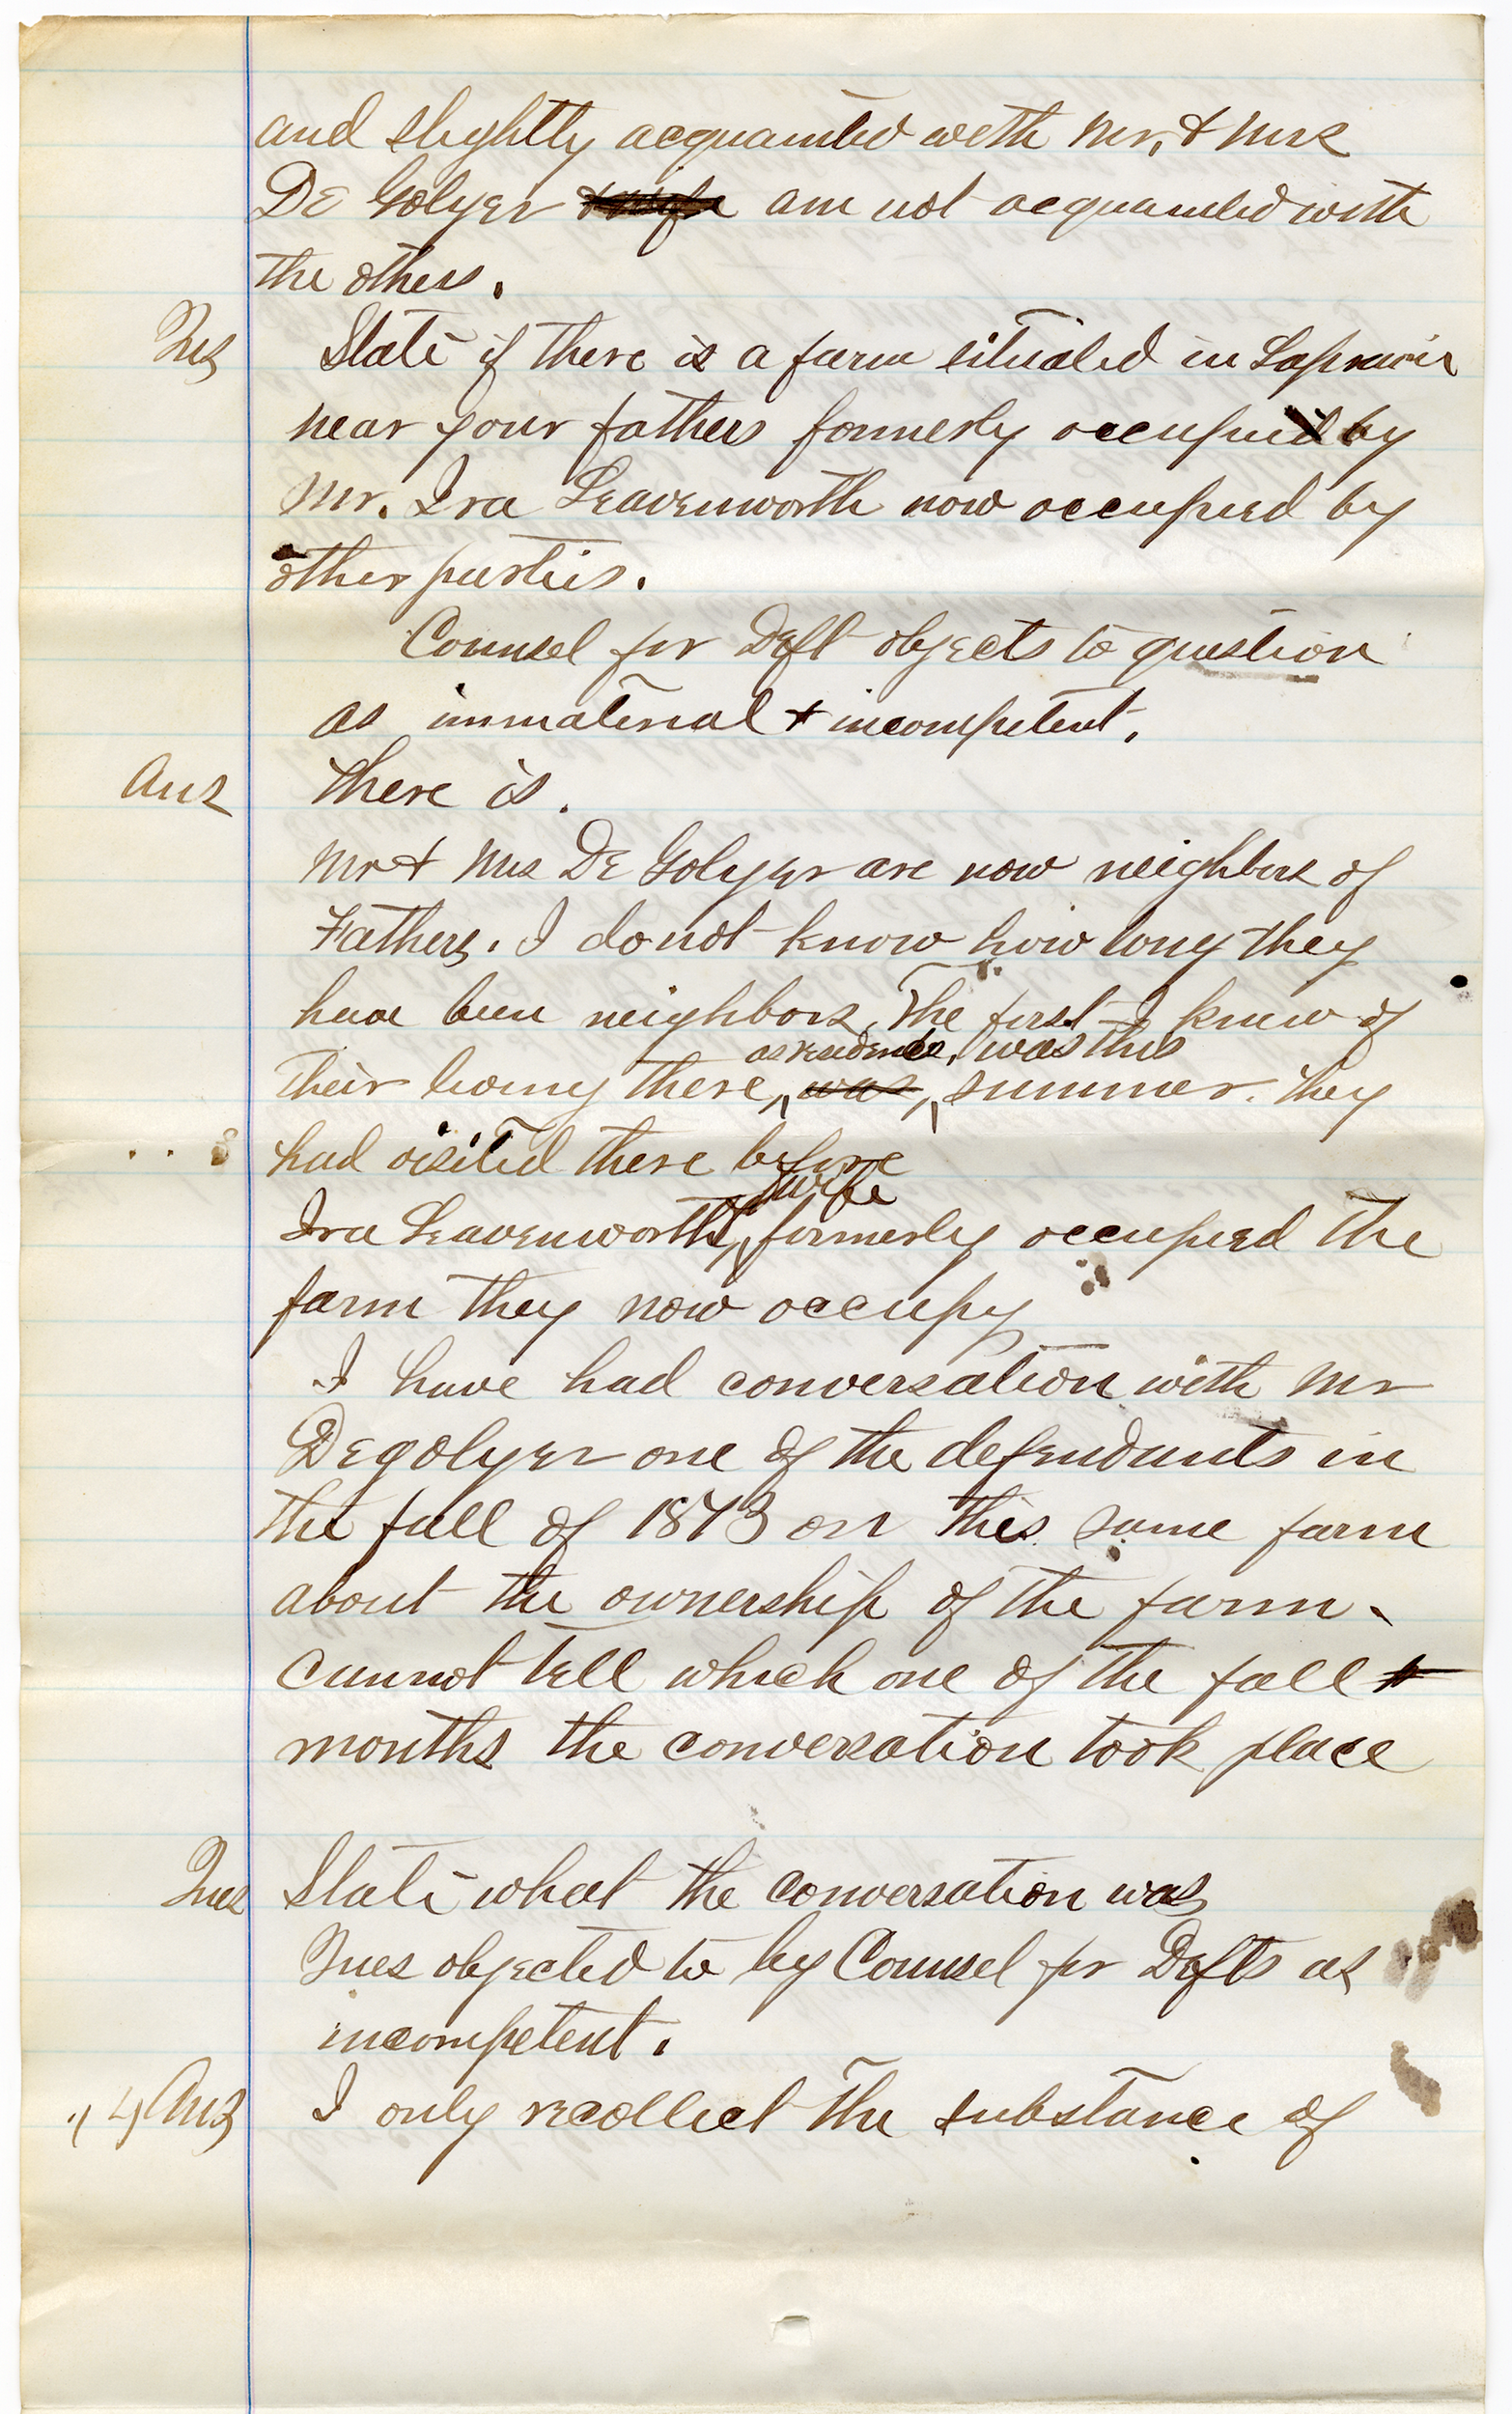 and slightly acquainted with Mr. & Mrs
De Golyer & wife am not acquainted with
the others.
Ques State if there is a farm situated in
near your fathers formerly occupied by
Mr. Ira Leavenworth now occupied by
other parties.
Counsel for Deft objects to question
as immaterial & incompetent.
Ans There is.
Mr & Mrs De Golyer are now neighbors of
Fathers. I do not know how long they
have been neighbors, The first I knew of
as residents, was this
their living there, was, summer. they
had visited there before
& wife
Ira Leavenworth, formerly occupied the
farm they now occupy
I have had conversation with Mr
Degolyer one of the defendants in
the fall of 1873 on this same farm
about the ownership of the farm.
cannot tell which one of the fall
months the conversation took place
Ques State what the conversation was
Ques objected to by Counsel for Defts as
incompetent.
4 Ans I only recollect the substance of